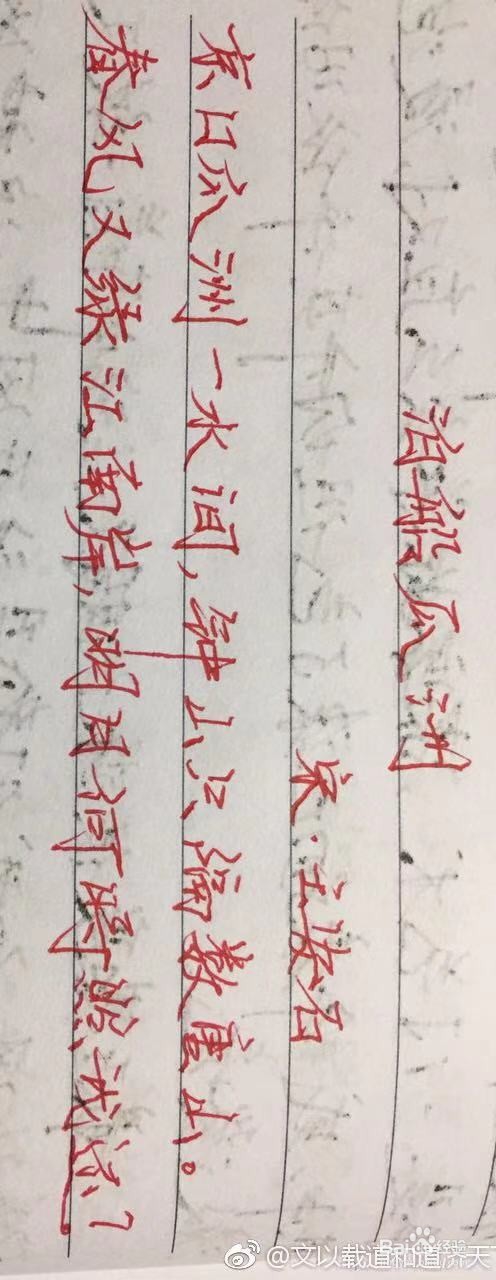 泊船瓜洲
宋·王安石
京口瓜洲一水间,钟山只隔数重山。
春风又绿江南岸,明月何时照我还?
Baidu经验
@文以载道和道济天下